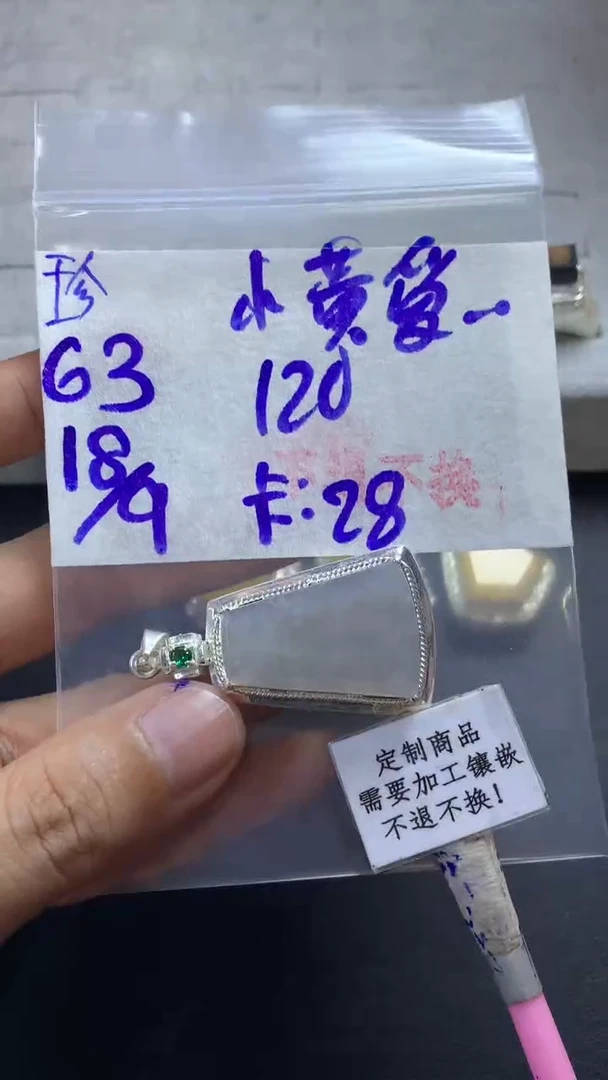 珍
63
18/9
小黄爱
120
卡:28
不换
定制商品
需要加工镶嵌
不退不换!